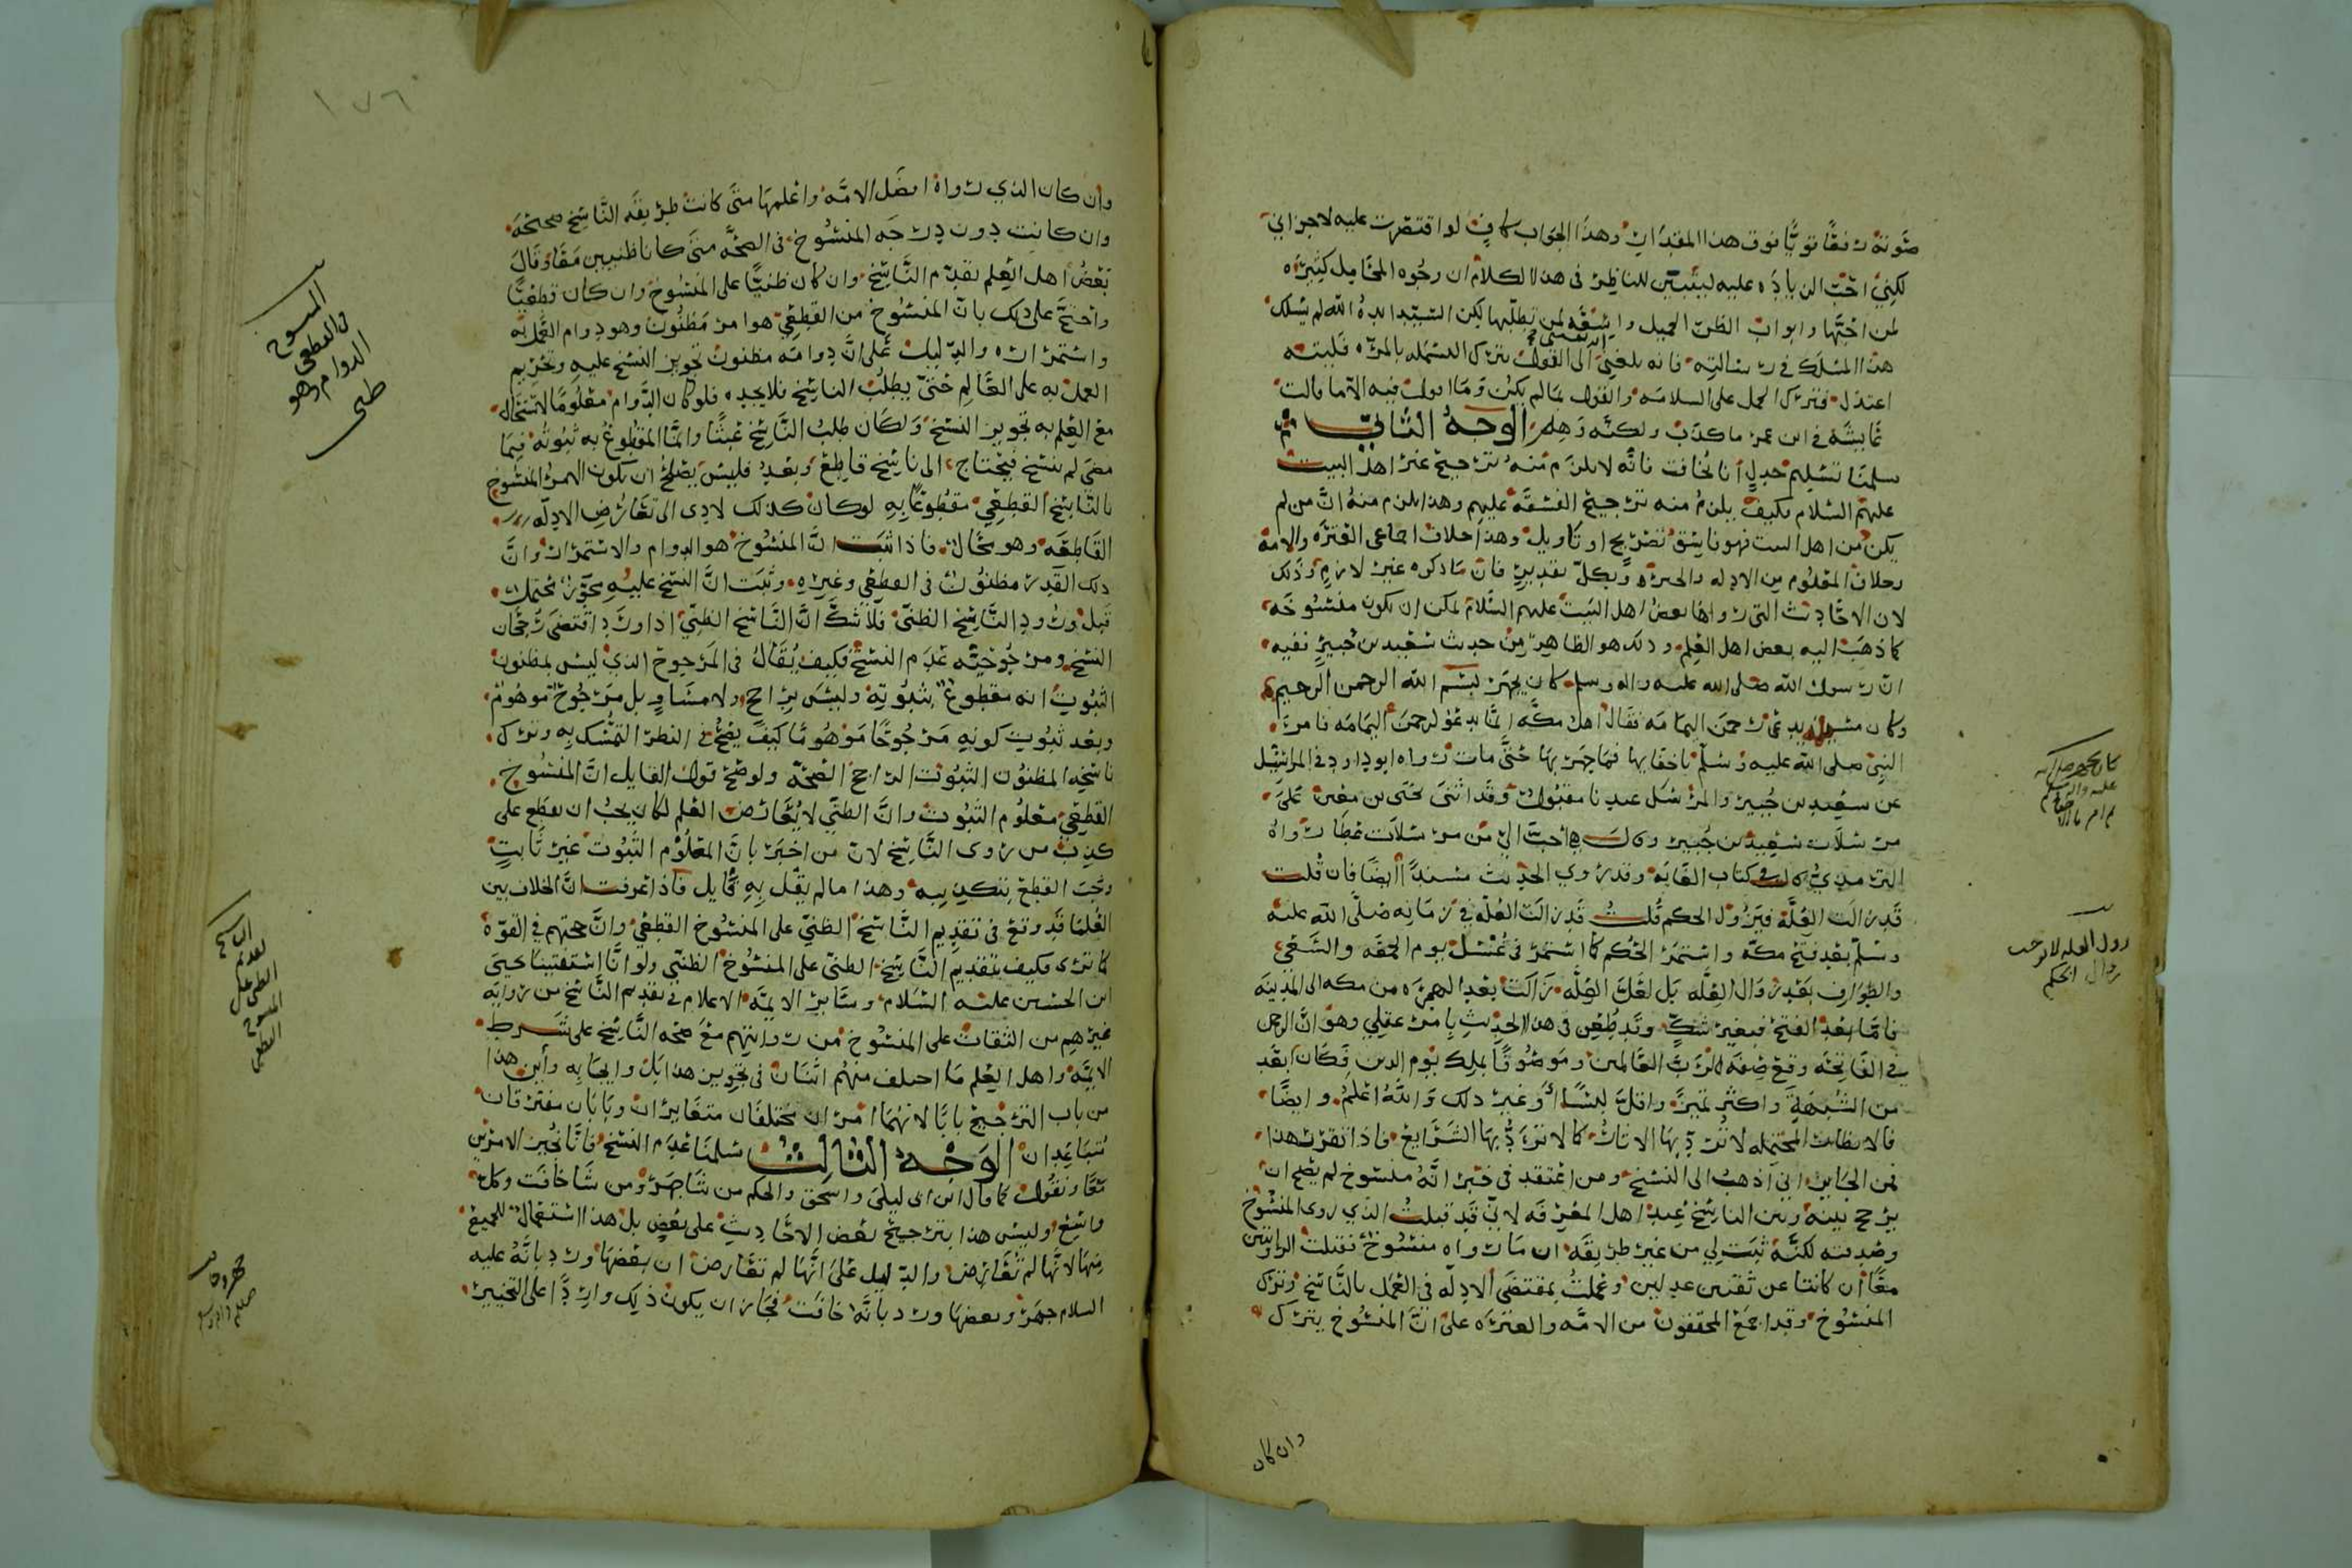 صوته رفعًا قويًّا فوق هذا المقدار وهذا الجواب كافٍ لو اقتصرت عليه لاجزاني
لكني احب الزيادة عليه ليتبين للناظر في هذا الكلام ان وجوه المحامل كثيرة
لمن احبها وابواب الظن الجميل واسعة لمن تطلبها لكن السيد ايده الله لم يسلك
هذا المسلك في رسالته فانه بلغني الى القول بترك البسملة بالمرة فليته
اعتذل فترك الحمل على السلامة والقول بما لم يكن وما اقول فيه الا ما قالت
عايشة في ابن عمر ما كذب ولكنه وهل الوجه الثاني
سلمنا تسليم جدل انا نخافت فانه لا يلزم منه ترجيح غير اهل البيت
عليهم السلام فكيف يلزم منه ترجيح الفسقة عليهم وهذا يلزم منه ان من لم
يكن من اهل البيت فهو فاسق تصريح او تاويل وهذا خلاف اجماع العترة والامة
وخلاف المعلوم من الادلة والخبرة وبكل تقدير فان ما ذكره غير لازم وذلك
لان الاحاديث التي رواها بعض اهل البيت عليهم السلام يمكن ان تكون منسوخة
كما ذهب اليه بعض اهل العلم وذلك هو الظاهر من حديث سعيد بن جبير ففيه
ان رسول الله صلى الله عليه واله وسلم كان يجهر ببسم الله الرحمن الرحيم
وكان مسيلمة يدعى رحمن اليمامة فقال اهل مكة انما يدعو لرحمن اليمامة فامر
النبي صلى الله عليه وسلم باخفايها فما جهر بها حتى مات رواه ابو داود في المراسيل
عن سعيد بن جبير والمرسل عندنا مقبول وقد اثنى يحيى بن معين على
مرسلات سعيد بن جبير وقال هي احب الي من مرسلات عطا رواه
الترمذي كذلك في كتاب القايه وقد روي الحديث مسندًا ايضًا فان قلت
قد زالت العلة فيزول الحكم قلت قد زالت العلة في زمانه صلى الله عليه
وسلم بعد فتح مكة واستمر الحكم كما استمر في غسل يوم الجمعة والسعي
والطواف بعد زوال العلة بل لعل العلة زالت بعد الهجرة من مكة الى المدينة
فاما بعد الفتح فبغير شك وقد طعن في هذا الحديث بامر عقلي وهو ان الرحمن
في الفاتحة وقع صفة لرب العالمين وموصوفًا بملك يوم الدين فكان ابعد
من الشبهة واكثر تميزًا واقل لبسًا او غير ذلك والله اعلم وايضًا
فالانظار المحتملة لا ترد بها الاثار كما لا ترد بها الشرايع فاذا تقرر هذا
فمن الجايز اني اذهب الى النسخ ومن اعتقد في خبر انه منسوخ لم يصح ان
يرجح بينه وبين الناسخ عند اهل المعرفة لاني قد قبلت الذي روى المنسوخ
وصدقته لكنه ثبت لي من غير طريقه ان ما رواه منسوخ فقبلت الروايتين
معًا ان كانتا عن ثقتين عدلين وعملت بمقتضى الادلة في العمل بالناسخ وترك
المنسوخ وقد اجمع المحققون من الامة والعترة على ان المنسوخ يترك
وان كان
كان يجهر صلى الله
عليه واله وسلم
زوال العلة لا يوجب
زوال الحكم
١٧٦
وان كان الذي رواه افضل الامة واعلمها متى كانت طريقة الناسخ صحيحة
وان كانت دون درجة المنسوخ في الصحة متى كانا ظنيين معًا وقال
بعض اهل العلم يقدم الناسخ وان كان ظنيًّا على المنسوخ وان كان قطعيًّا
واحتج على ذلك بان المنسوخ من القطعي هو امر مظنون وهو دوام العمل به
واستمراره والدليل على ان دوامه مظنون تجويز النسخ عليه وتحريم
العمل به على العالم حتى يطلب الناسخ فلا يجده فلو كان الدوام معلومًا لاستحال
مع العلم به تجويز النسخ ولكان طلب الناسخ عبثًا وانما المقطوع به ثبوته فيما
مضى لم ينسخ فيحتاج الى ناسخ قاطع وبعد فليس يصلح ان يكون الامر المنسوخ
بالناسخ القطعي مقطوعًا به لو كان كذلك لادى الى تعارض الادلة
القاطعة وهو محال فاذا ثبت ان المنسوخ هو الدوام والاستمرار وان
ذلك القدر مظنون في القطعي وغيره وثبت ان النسخ عليه مجوز محتمل
قبل ورود الناسخ الظني فلا شك ان الناسخ الظني اذا ورد اقتضى رجحان
النسخ ومرجوحية عدم النسخ فكيف يقال في المرجوح الذي ليس بمظنون
الثبوت انه مقطوع بثبوته وليس براجح ولا مساوٍ بل مرجوح موهوم
وبعد ثبوت كونه مرجوحًا موهومًا كيف يصح في النظر التمسك به وترك
ناسخه المظنون الثبوت الراجح الصحة ولو صح قول القايل ان المنسوخ
القطعي معلوم الثبوت وان الظني لا يعارض العلم لكان يجب ان نقطع على
كذب من روى الناسخ لان من اخبر بان المعلوم الثبوت غير ثابت
وجب القطع بتكذيبه وهذا ما لم يقل به قايل فاذا عرفت ان الخلاف بين
العلما قد وقع في تقديم الناسخ الظني على المنسوخ القطعي وان حجتهم في القوة
كما ترى فكيف بتقديم الناسخ الظني على المنسوخ الظني ولو انا استفتينا يحيى
ابن الحسين عليه السلام وساير الايمة الاعلام في تقديم الناسخ من رواية
غيرهم من الثقات على المنسوخ من روايتهم مع صحة الناسخ على شرط
الايمة واهل العلم ما اختلف منهم اثنان في تجويز هذا بل وايجابه واين هذا
من باب الترجيح بابًا لانهما امران مختلفان متغايران وبابان مفترقان
متباعدان الوجه الثالث سلمنا عدم النسخ فانا نجيز الامرين
معًا ونقول كما قال ابن ابي ليلى واسحق والحكم من شا جهر ومن شا خافت وكل
واسع وليس هذا بترجيح بعض الاحاديث على بعض بل هذا استعمال للجميع
منها لانها لم تتعارض والدليل على انها لم تتعارض ان بعضها ورد بانه عليه
السلام جهر وبعضها ورد بانه خافت فجاز ان يكون ذلك واردًا على التخيير
المنسوخ
من القطعي
الدوام وهو
ظني
الناسخ
تقديم
الظني على
المنسوخ
القطعي